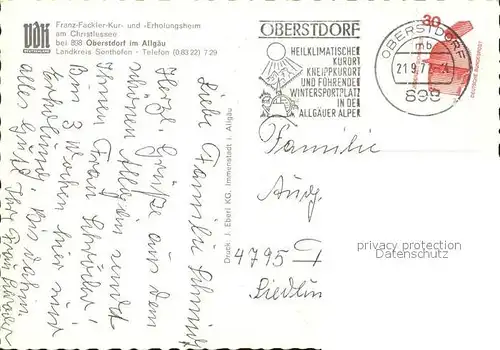 VdK
Franz-Fackler-Kur- und -Erholungsheim
am Christlessee
bei 898 Oberstdorf im Allgäu
Landkreis Sonthofen - Telefon (0 83 22) 7 29
OBERSTDORF
HEILKLIMATISCHER
KURORT
KNEIPPKURORT
UND FÜHRENDER
WINTERSPORTPLATZ
IN DEN
ALLGÄUER ALPEN
OBERSTDORF
mb
21.9.7
898
30
DEUTSCHE BUNDESPOST
Liebe Familie Schmitz
Herzl. Grüße aus dem
schönen Allgäu sendet
Ihnen Frau
Bin 3 Wochen hier zur
Erholung. Bis dahin
alles Gute
Ihre Frau
Druck: J. Eberl KG. Immenstadt i. Allgäu
Familie
4795
privacy protection
Datenschutz